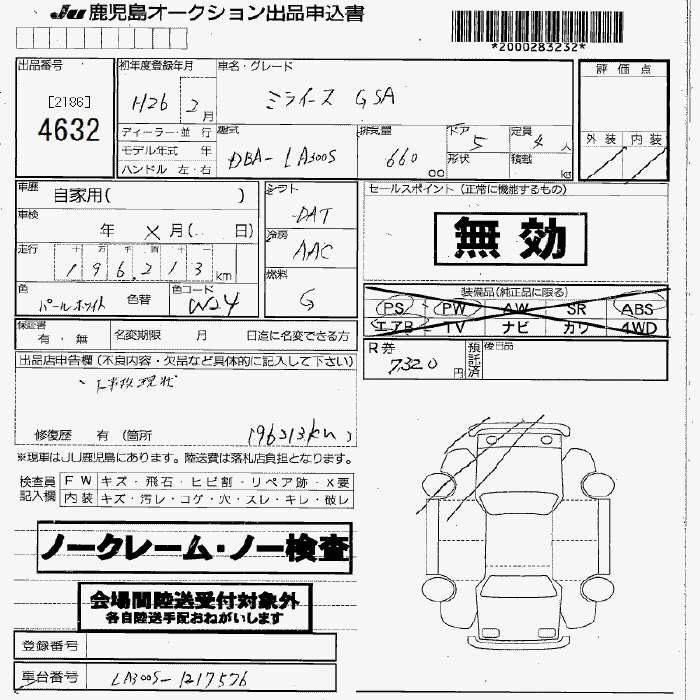 JU 鹿児島オークション出品申込書
*2000283232*
出品番号
[2186]
4632
初年度登録年月
H26 2月
車名・グレード
ミライース GSA
評価点
外装 内装
ディーラー・並行
モデル年式 年
ハンドル 左・右
型式
DBA-LA300S
排気量
660 cc
ドア
5
形状
定員
4人
積載
kg
車歴
自家用( )
車検
年 X月(  日)
走行
十万千百十一
196213km
色
パールホワイト 色替
色コード
W24
シフト
DAT
冷房
AAC
燃料
G
セールスポイント (正常に機能するもの)
無効
装備品(純正品に限る)
PS PW AW SR ABS
エアB TV ナビ カワ 4WD
保証書
有・無
名変期限 月 日迄に名変できる方
R券
7320円
預託済
後日品
出品店申告欄(不良内容・欠品など具体的に記入して下さい)
現状
修復歴 有 (箇所
196213km )
※現車はJU鹿児島にあります。陸送費は落札店負担となります。
検査員記入欄
FW キズ・飛石・ヒビ割・リペア跡・X要
内装 キズ・汚レ・コゲ・穴・スレ・キレ・破レ
ノークレーム・ノー検査
会場間陸送受付対象外
各自陸送手配おねがいします
登録番号
車台番号
LA300S-1217576